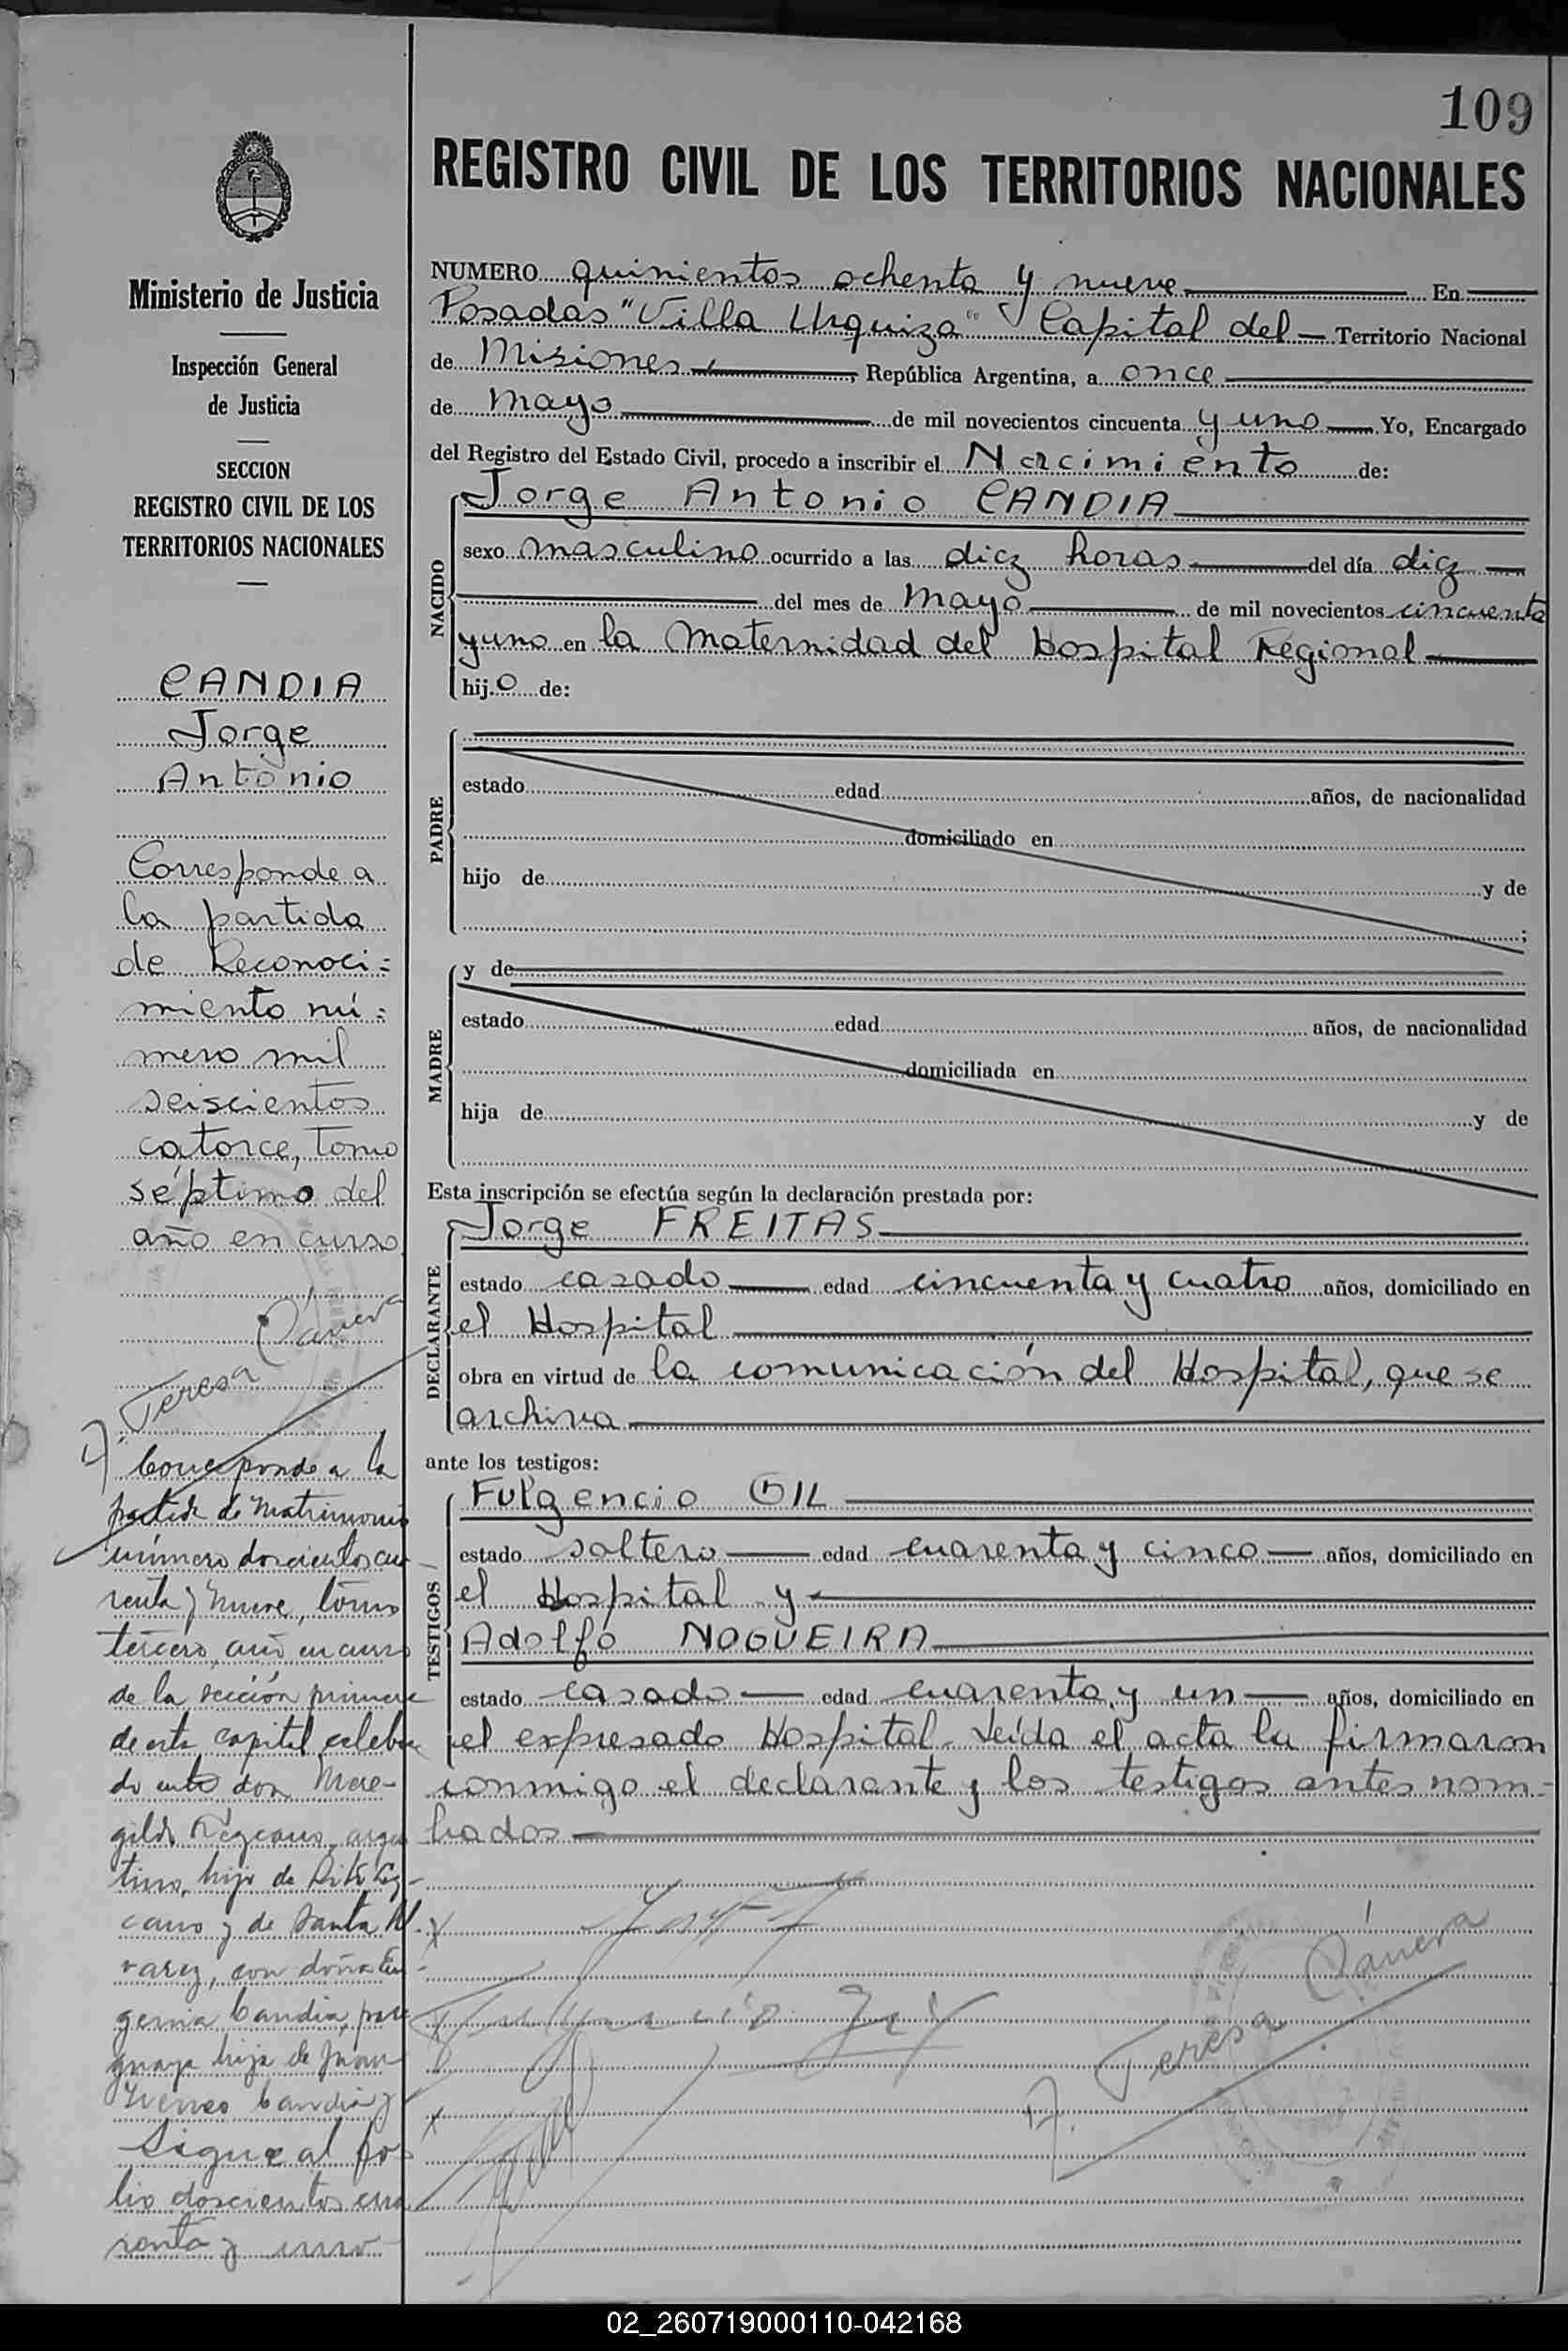 109
REGISTRO CIVIL DE LOS TERRITORIOS NACIONALES
Ministerio de Justicia
Inspección General
de Justicia
SECCION
REGISTRO CIVIL DE LOS
TERRITORIOS NACIONALES
CANDIA
Jorge
Antonio
Corresponde a
la partida
de Reconoci=
miento nú=
mero mil
seiscientos
catorce, tomo
séptimo del
año en curso
Teresa
Corresponde a la
partida de Matrimonio
número doscientos cua
renta y nueve, tomo
tercero, año en curso
de la sección primera
de esta capital celebra
do entre don Mere-
gildo argen
tino, hijo de
cano y de Santa Al
varez, con doña Eu
genia Candia, para
guaya hija de Juan
Candia y
Sigue al fo-
lio doscientos cua
renta y uno
NUMERO quinientos ochenta y nueve En
Posadas "Villa Urquiza" Capital del Territorio Nacional
de Misiones, República Argentina, a once
de mayo de mil novecientos cincuenta y uno Yo, Encargado
del Registro del Estado Civil, procedo a inscribir el Nacimiento de:
NACIDO
Jorge Antonio CANDIA
sexo masculino ocurrido a las diez horas del día diez
del mes de mayo de mil novecientos cincuenta
y uno en la Maternidad del Hospital Regional
hijo de:
PADRE
estado edad años, de nacionalidad
domiciliado en
hijo de y de
;
MADRE
y de
estado edad años, de nacionalidad
domiciliada en
hija de y de
Esta inscripción se efectúa según la declaración prestada por:
DECLARANTE
Jorge FREITAS
estado casado edad cincuenta y cuatro años, domiciliado en
el Hospital
obra en virtud de la comunicación del Hospital, que se
archiva
ante los testigos:
TESTIGOS
Fulgencio GIL
estado soltero edad cuarenta y cinco años, domiciliado en
el Hospital y
Adolfo NOGUEIRA
estado casado edad cuarenta y un años, domiciliado en
el expresado Hospital. Leída el acta la firmaron
conmigo el declarante y los testigos antes nom-
brados
Fulgencio Gil
Teresa
02_260719000110-042168